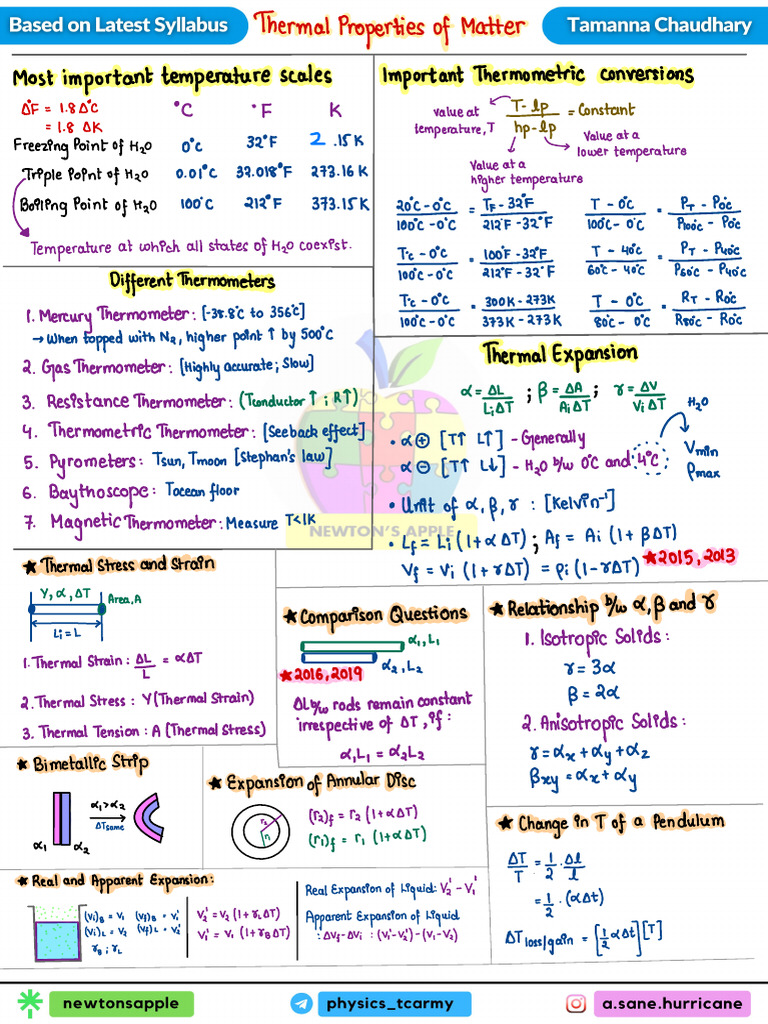 Based on Latest Syllabus
Thermal Properties of Matter
Tamanna Chaudhary
Most important temperature scales
Δ°F = 1.8 Δ°C
= 1.8 ΔK
°C °F K
Freezing Point of H₂O 0°C 32°F 2 .15K
Triple Point of H₂O 0.01°C 32.018°F 273.16K
Boiling Point of H₂O 100°C 212°F 373.15K
Temperature at which all states of H₂O coexist.
Important Thermometric conversions
value at temperature, T
T - lp / hp - lp = Constant
Value at a lower temperature
Value at a higher temperature
20°C - 0°C / 100°C - 0°C = TF - 32°F / 212°F - 32°F
T - 0°C / 100°C - 0°C = PT - P0°C / P100°C - P0C
Tc - 0°C / 100°C - 0°C = 100°F - 32°F / 212°F - 32°F
T - 40°C / 60°C - 40°C = PT - P40°C / P60°C - P40°C
Tc - 0°C / 100°C - 0°C = 300K - 273K / 373K - 273K
T - 0°C / 80°C - 0°C = RT - R0°C / R80°C - R0°C
Different Thermometers
1. Mercury Thermometer: [-38.8°C to 356°C]
→ When topped with N₂, higher point ↑ by 500°C
2. Gas Thermometer: [Highly accurate; Slow]
3. Resistance Thermometer: (Tconductor ↑ ; R↑)
4. Thermometric Thermometer: [Seeback effect]
5. Pyrometers: Tsun, Tmoon [Stephan's law]
6. Baythoscope: Tocean floor
7. Magnetic Thermometer: Measure T<1K
NEWTON'S APPLE
Thermal Expansion
α = ΔL / LiΔT ; β = ΔA / AiΔT ; γ = ΔV / ViΔT
H₂O
• α ⊕ [T↑ L↑] - Generally
α ⊖ [T↑ L↓] - H₂O b/w 0°C and 4°C
Vmin
ρmax
• Unit of α, β, γ : [Kelvin⁻¹]
• Lf = Li (1+αΔT) ; Af = Ai (1+βΔT)
Vf = Vi (1+γΔT) = ρi (1-γΔT) ★2015, 2013
★ Thermal Stress and Strain
Y, α, ΔT
Area, A
Li = L
1. Thermal Strain: ΔL / L = αΔT
2. Thermal Stress : Y (Thermal Strain)
3. Thermal Tension : A (Thermal Stress)
★ Comparison Questions
α₁, L₁
α₂, L₂
★2016, 2019
ΔL b/w rods remain constant
irrespective of ΔT, if:
α₁L₁ = α₂L₂
★ Relationship b/w α, β and γ
1. Isotropic Solids:
γ = 3α
β = 2α
2. Anisotropic Solids:
γ = αx + αy + αz
βxy = αx + αy
★ Bimetallic Strip
α₁ > α₂
ΔTsame
α₁ α₂
★ Expansion of Annular Disc
r₂
r₁
(r₂)f = r₂ (1+αΔT)
(r₁)f = r₁ (1+αΔT)
★ Change in T of a Pendulum
ΔT / T = 1/2 · Δl / l
= 1/2 · (αΔt)
ΔT loss/gain = [1/2 αΔt] [T]
★ Real and Apparent Expansion:
(Vi)B = V₁ (Vf)B = V₁'
(Vi)L = V₂ (Vf)L = V₂'
γB ; γL
V₂' = V₂ (1+γLΔT)
V₁' = V₁ (1+γBΔT)
Real Expansion of Liquid: V₂' - V₁'
Apparent Expansion of Liquid
: ΔVf - ΔVi : (V₁' - V₂') - (V₁ - V₂)
newtonsapple
physics_tcarmy
a.sane.hurricane